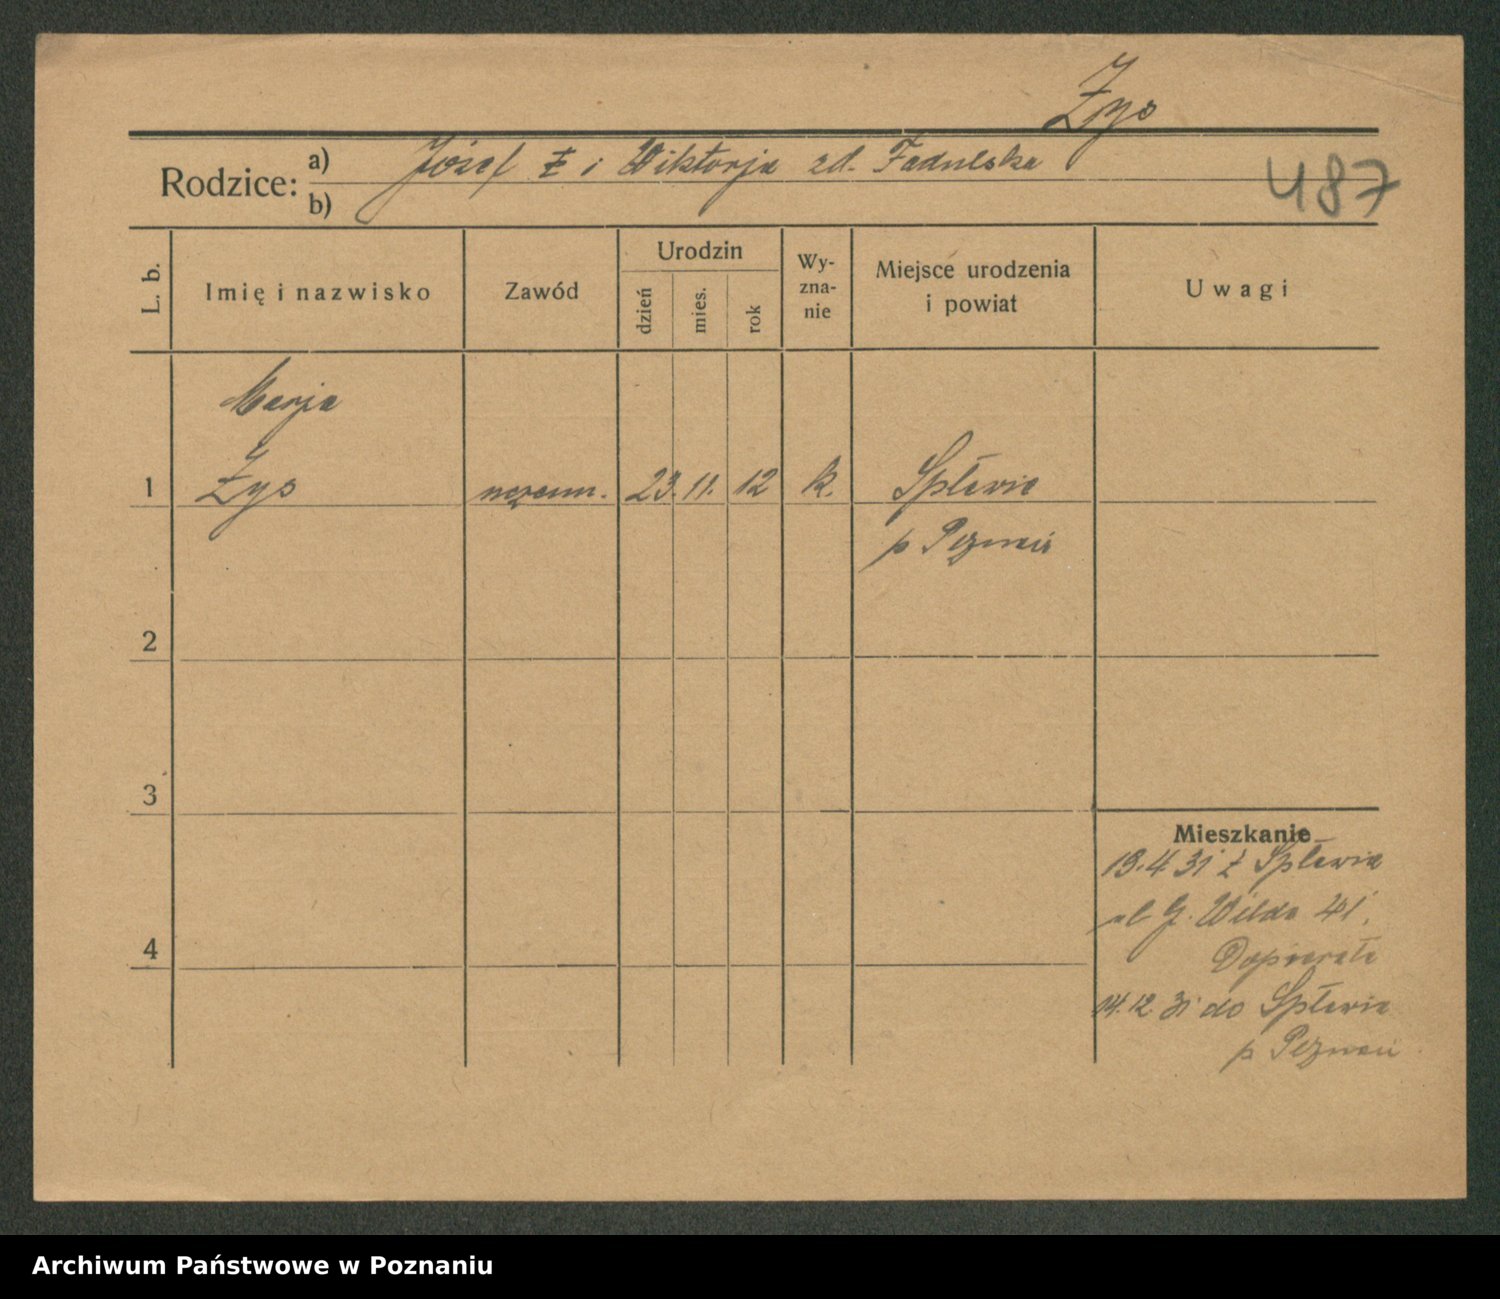 Żys
Rodzice: a) Józef Ż i Wiktorja zd. Fadulska
b)
487
L. b.
Imię i nazwisko
Zawód
Urodzin
dzień
mies.
rok
Wy-
zna-
nie
Miejsce urodzenia
i powiat
Uwagi
Marja
1 Żys 23. 11. 12 k. Spławie
p Poznań
2
3
Mieszkanie
4
19.4.31 z Spławia
ul G. Wilda 41.
Dopierała
14.12.31 do Spławia
p Poznań
Archiwum Państwowe w Poznaniu